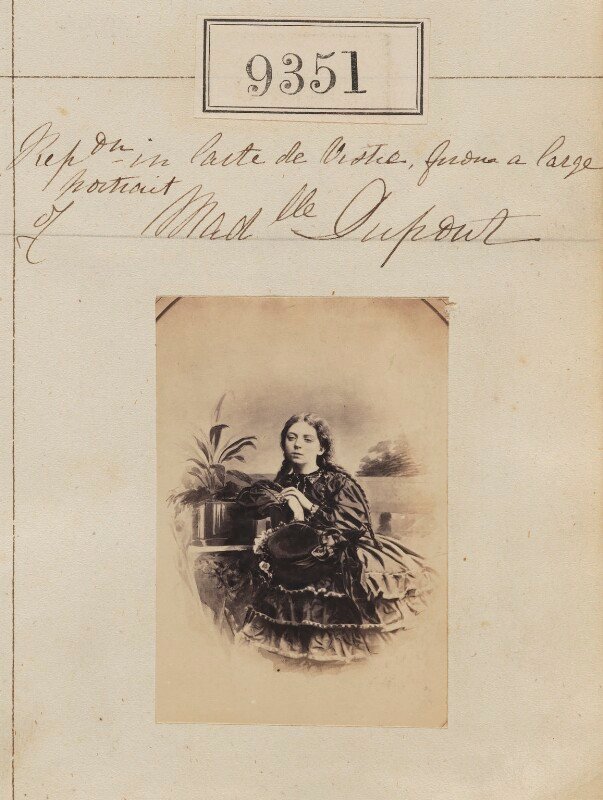 9351
Rep dn in Carte de Visite, from a large
portrait
of Mad lle Dupont